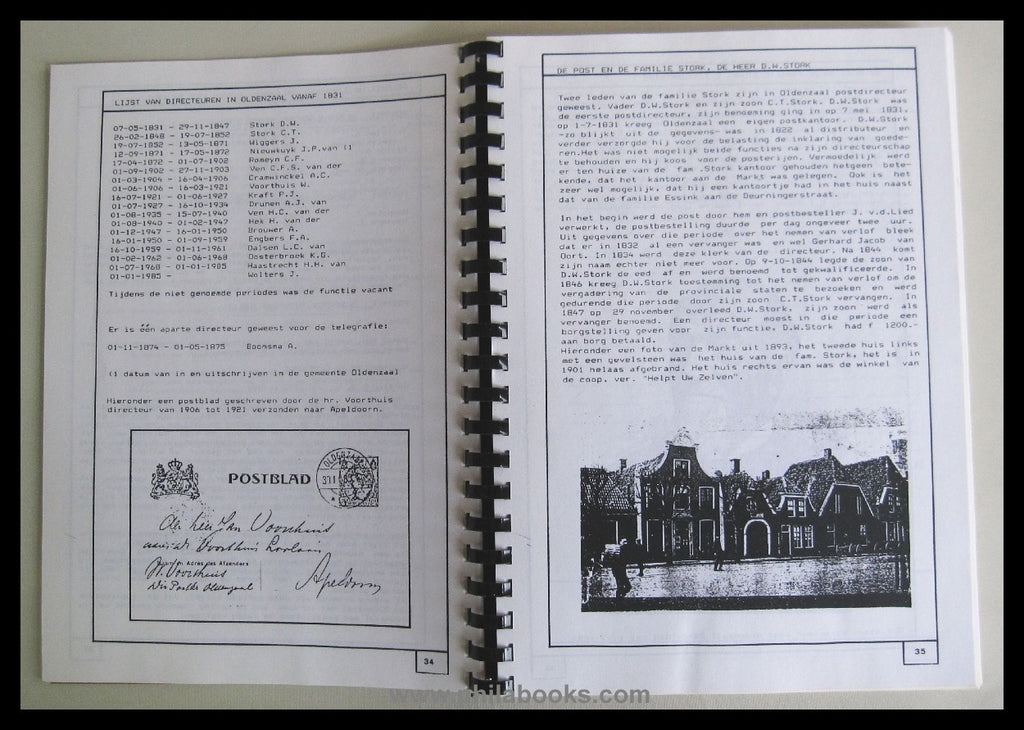 LIJST VAN DIRECTEUREN IN OLDENZAAL VANAF 1831
07-05-1831 - 29-11-1847 Stork D.W.
26-02-1848 - 19-07-1852 Stork C.T.
19-07-1852 - 13-05-1871 Wiggers J.
12-09-1871 - 17-05-1872 Nieuwkuyk J.P.van (1
17-04-1872 - 01-07-1902 Romeyn C.F.
01-09-1902 - 27-11-1903 Ven C.F.S. van der
01-03-1904 - 16-04-1906 Cramwinckel A.C.
01-06-1906 - 16-03-1921 Voorthuis W.
16-07-1921 - 01-06-1927 Kraft P.J.
01-07-1927 - 16-10-1934 Drunen A.J. van
01-08-1935 - 15-07-1940 Ven H.C. van der
01-08-1940 - 01-02-1947 Hek H. van der
01-12-1947 - 16-01-1950 Brouwer A.
16-01-1950 - 01-09-1959 Engbers F.A.
16-10-1959 - 01-11-1961 Dalsen L.C. van
01-02-1962 - 01-06-1968 Oosterbroek K.G.
01-07-1968 - 01-01-1985 Haastrecht H.H. van
01-01-1985 - Wolters J.
Tijdens de niet genoemde periodes was de functie vacant
Er is één aparte directeur geweest voor de telegrafie:
01-11-1874 - 01-05-1875 Boomsma A.
(1 datum van in en uitschrijven in de gemeente Oldenzaal
Hieronder een postblad geschreven door de hr. Voorthuis
directeur van 1906 tot 1921 verzonden naar Apeldoorn.
POSTBLAD
OLDENZAAL
Voorthuis
Apeldoorn
34
DE POST EN DE FAMILIE STORK, DE HEER D.W.STORK
Twee leden van de familie Stork zijn in Oldenzaal postdirecteur
geweest. Vader D.W.Stork en zijn zoon C.T.Stork. D.W.Stork was
de eerste postdirecteur, zijn benoeming ging in op 7 mei 1831,
op 1-7-1831 kreeg Oldenzaal een eigen postkantoor. D.W.Stork
-zo blijkt uit de gegevens- was in 1822 al distributeur en
verder verzorgde hij voor de belasting de inklaring van goede-
ren.Het was niet mogelijk beide functies na zijn directeurschap
te behouden en hij koos voor de posterijen. Vermoedelijk werd
er ten huize van de fam .Stork kantoor gehouden hetgeen bete-
kende, dat het kantoor aan de Markt was gelegen. Ook is het
zeer wel mogelijk, dat hij een kantoortje had in het huis naast
dat van de familie Essink aan de Deurningerstraat.
In het begin werd de post door hem en postbesteller J. v.d.Lied
verwerkt, de postbestelling duurde per dag ongeveer twee uur.
Uit gegevens over die periode over het nemen van verlof bleek
dat er in 1832 al een vervanger was en wel Gerhard Jacob van
Oort. In 1834 werd deze klerk van de directeur. Na 1844 komt
zijn naam echter niet meer voor. Op 9-10-1844 legde de zoon van
D.W.Stork de eed af en werd benoemd tot gekwalificeerde. In
1846 kreeg D.W.Stork toestemming tot het nemen van verlof om de
vergadering van de provinciale staten te bezoeken en werd
gedurende die periode door zijn zoon C.T.Stork vervangen. In
1847 op 29 november overleed D.W.Stork, zijn zoon werd als
vervanger benoemd. Een directeur moest in die periode een
borgstelling geven voor zijn functie, D.W.Stork had f 1200.-
aan borg betaald.
Hieronder een foto van de Markt uit 1893, het tweede huis links
met een gevelsteen was het huis van de fam. Stork, het is in
1901 helaas afgebrand. Het huis rechts ervan was de winkel van
de coop. ver. "Helpt Uw Zelven".
35
www.philabooks.com